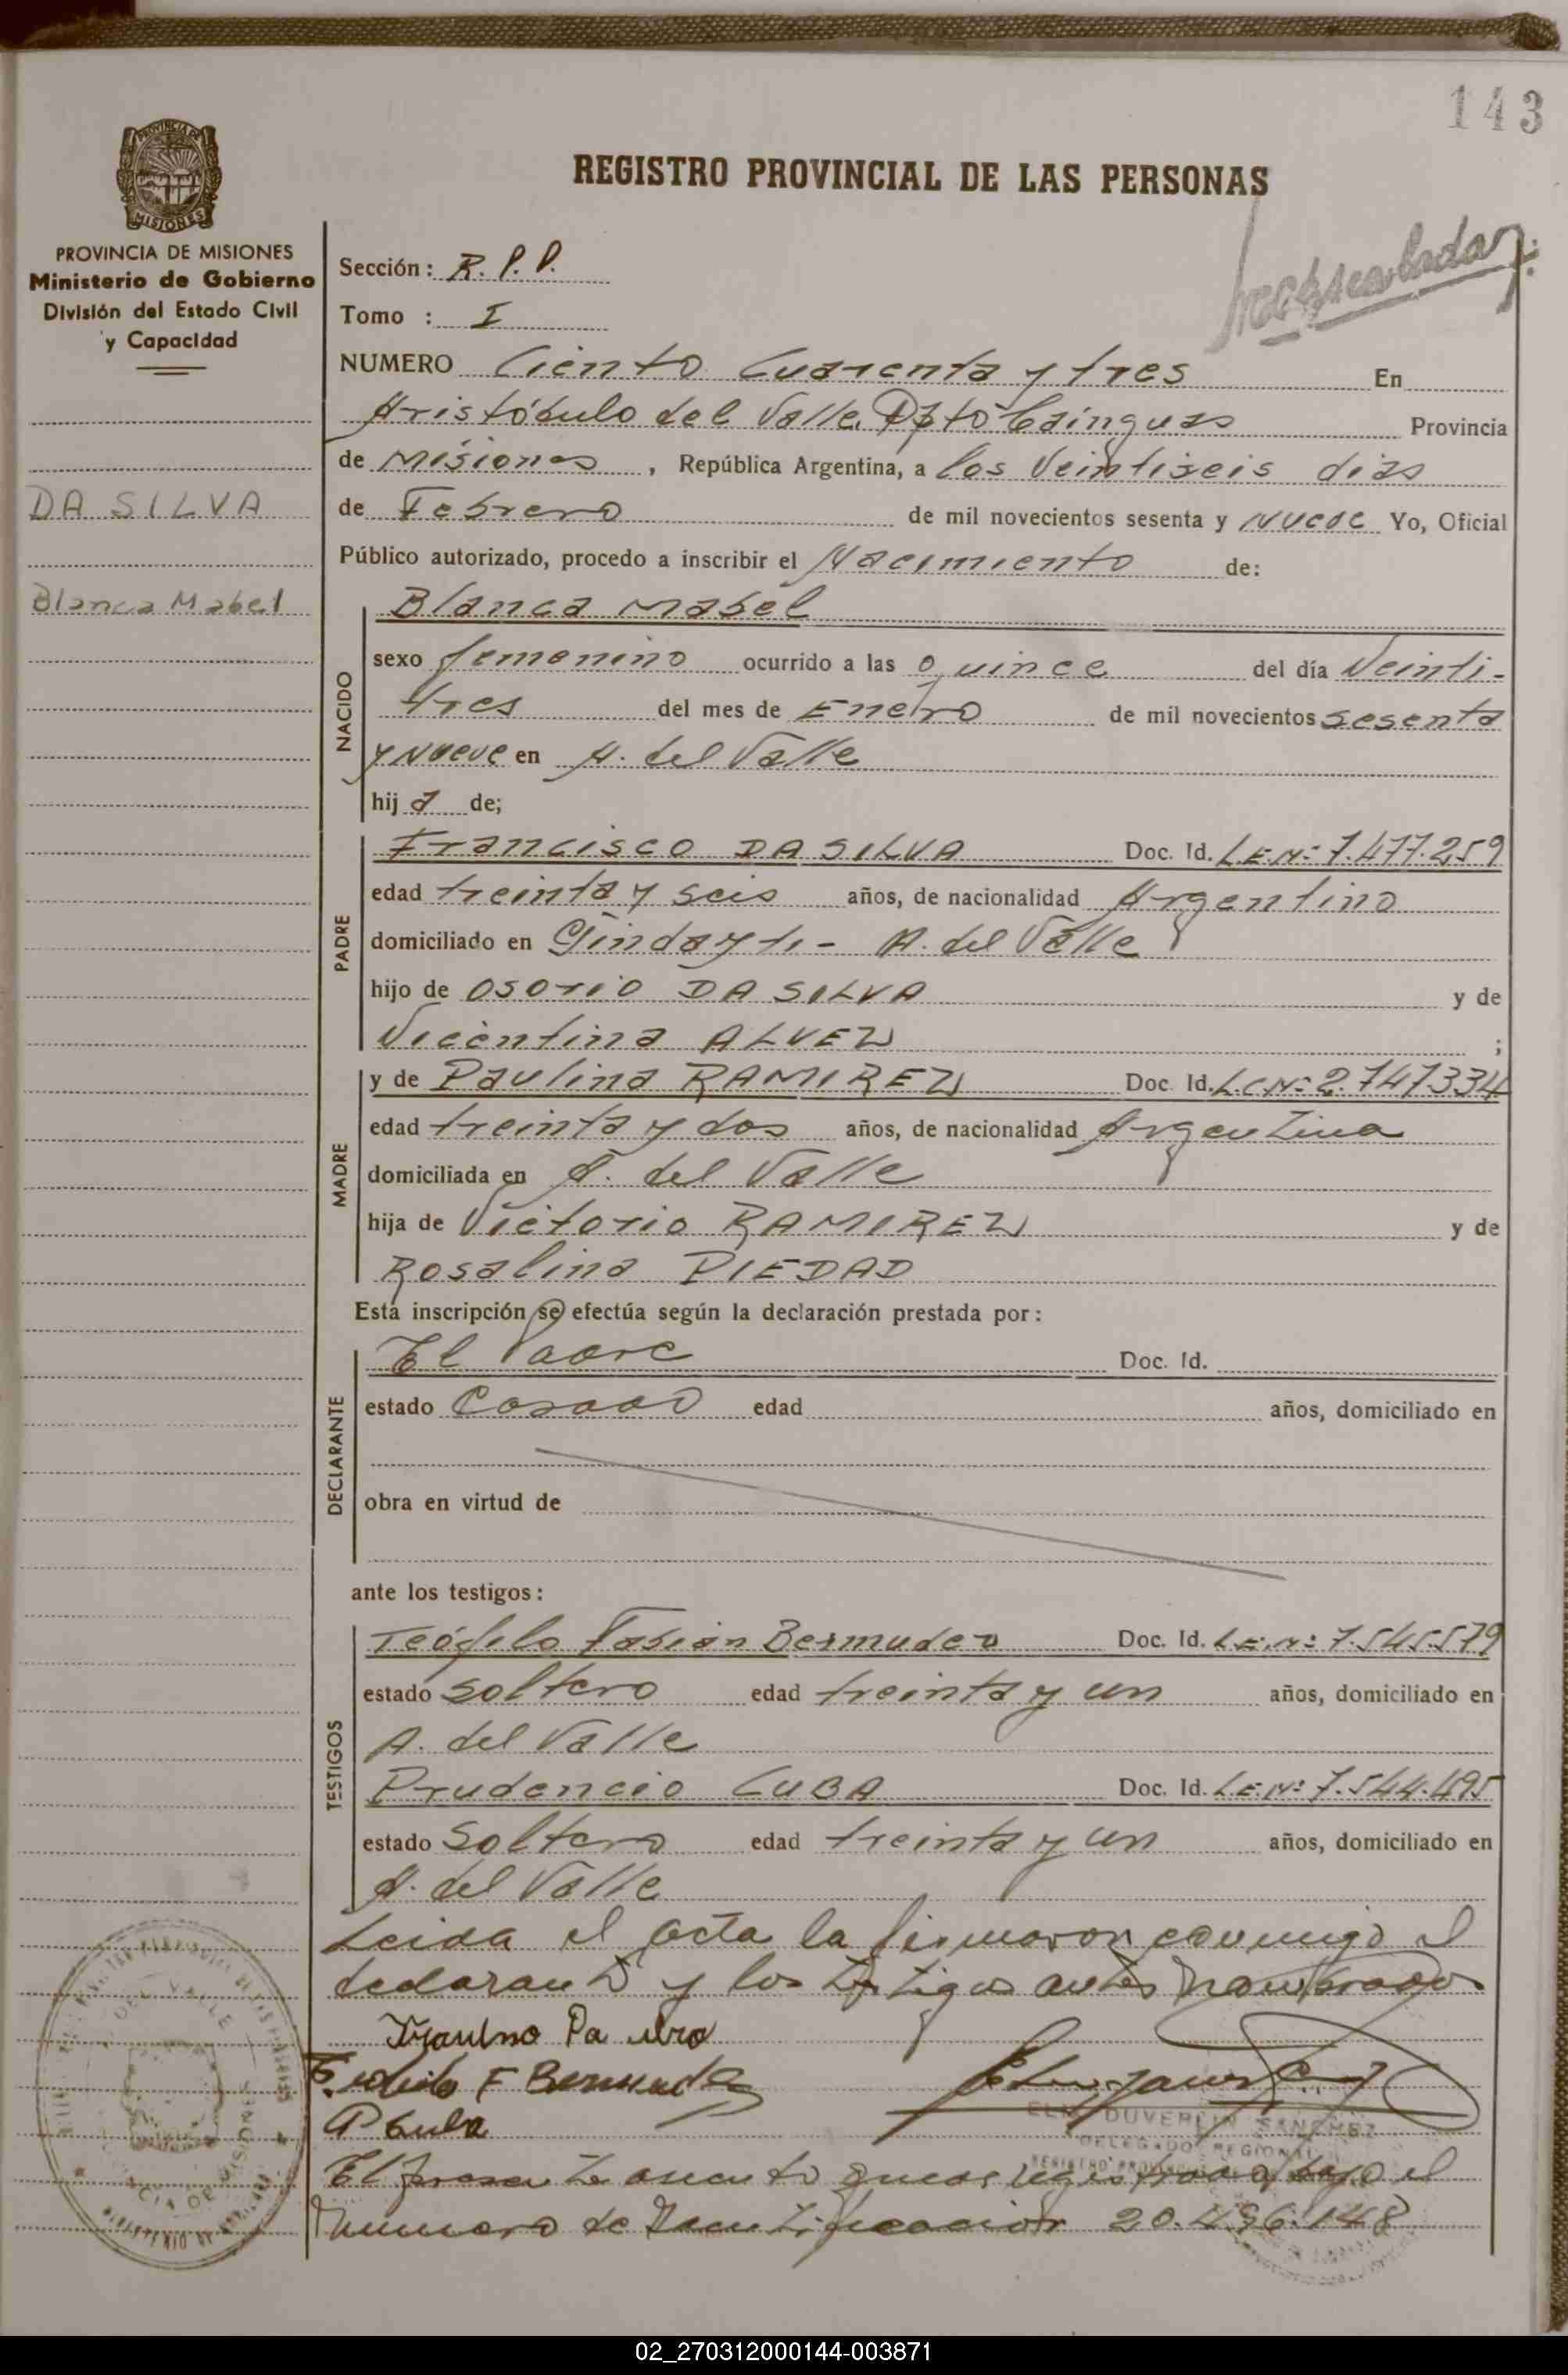 143
REGISTRO PROVINCIAL DE LAS PERSONAS
PROVINCIA DE MISIONES
Ministerio de Gobierno
División del Estado Civil
y Capacidad
DA SILVA
Blanca Mabel
Sección: R. P. P.
Tomo : I
NUMERO Ciento Cuarenta y tres En
Aristóbulo del Valle, Dpto Cainguas Provincia
de Misiones, República Argentina, a los Veintiseis dias
de Febrero de mil novecientos sesenta y nueve Yo, Oficial
Público autorizado, procedo a inscribir el Nacimiento de:
NACIDO
Blanca Mabel
sexo femenino ocurrido a las quince del día Veinti-
tres del mes de Enero de mil novecientos sesenta
y Nueve en A. del Valle
hija de;
PADRE
Francisco DA SILVA Doc. Id. L.E.Nº 7.477.259
edad treinta y seis años, de nacionalidad Argentino
domiciliado en A. del Valle
hijo de Osorio DA SILVA y de
Vicentina ALVEZ ;
MADRE
y de Paulina RAMIREZ Doc. Id. L.C.Nº 2.747.334
edad treinta y dos años, de nacionalidad Argentina
domiciliada en A. del Valle
hija de Victorio RAMIREZ y de
Rosalina PIEDAD
Esta inscripción se efectúa según la declaración prestada por:
DECLARANTE
El Padre Doc. Id.
estado Casado edad años, domiciliado en
obra en virtud de
ante los testigos:
TESTIGOS
Teófilo Fabián Bermudez Doc. Id. L.E.Nº 7.545.579
estado Soltero edad treinta y un años, domiciliado en
A. del Valle
Prudencio CUBA Doc. Id. L.E.Nº 7.544.495
estado Soltero edad treinta y un años, domiciliado en
A. del Valle
Leida el acta la firmaron conmigo el
declarante y los testigos antes nombrados
Teofilo F Bermudez
P Cuba
DUVERLIN SANCHEZ
DELEGADO REGIONAL
El presente asiento queda registrado bajo el
Numero de Identificacion 20.496.148
02_270312000144-003871